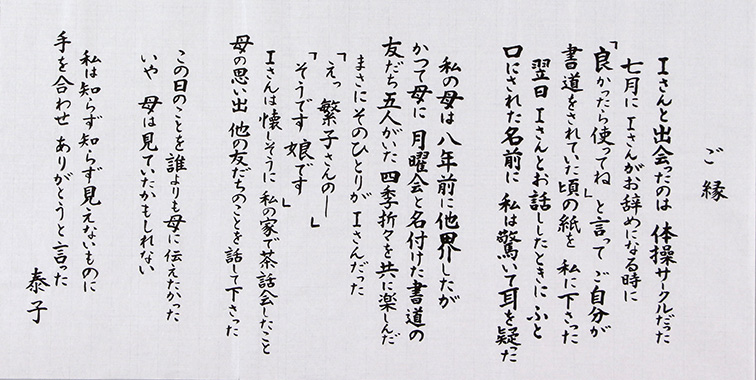 ご縁
Iさんと出会ったのは 体操サークルだった
七月にIさんがお辞めになる時に
「良かったら使ってね」と言って ご自分が
書道をされていた頃の紙を 私に下さった
翌日 Iさんとお話ししたときに ふと
口にされた名前に 私は驚いて耳を疑った
私の母は 八年前に他界したが
かつて母に 月曜会と名付けた書道の
友だち五人がいた 四季折々を共に楽しんだ
まさにそのひとりが Iさんだった
「えっ 繁子さんの―」
「そうです 娘です」
Iさんは懐しそうに 私の家で茶話会したこと
母の思い出 他の友だちのことを話して下さった
この日のことを誰よりも母に伝えたかった
いや 母は見ていたかもしれない
私は知らず知らず見えないものに
手を合わせ ありがとうと言った
泰子